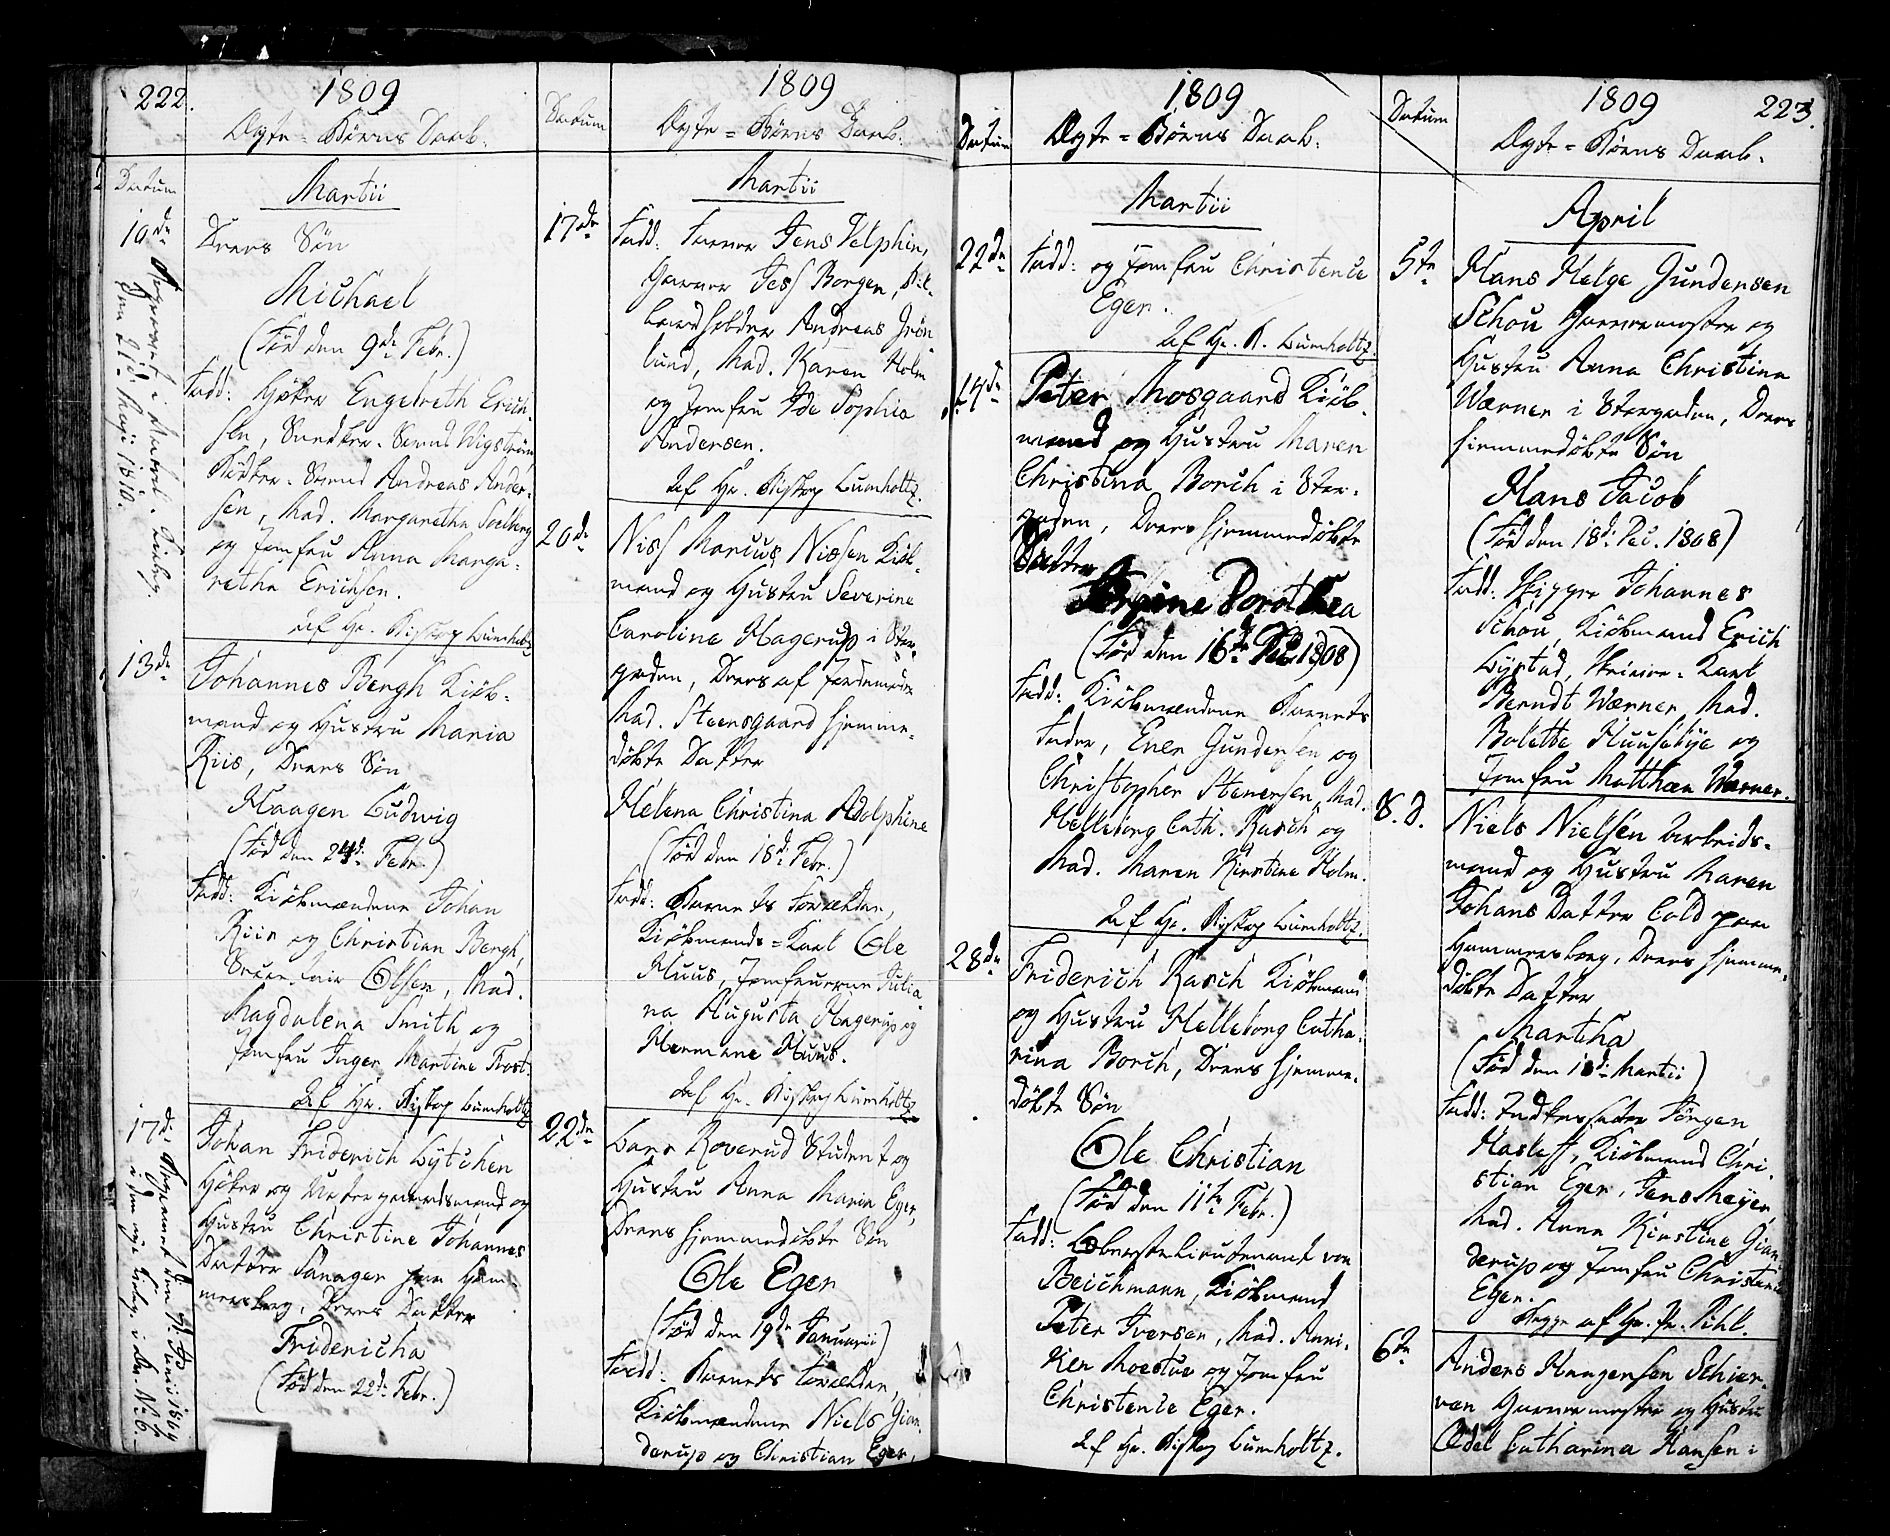 222.
1809
Ægte=Børns Daab.
Datum
Martii
10de
Deres Søn
Michael
(Fød den 9de Febr.)
Fadd: Høker Engebreth Erich-
sen, Snedker-Svend Wigström
Bødker-Svend Andreas Ander-
sen, Mad. Margaretha Soelberg
og Jomfru Anna Marga-
retha Erichsen.
af Hr. Bisкop Lumholtz
13de
Johannes Bergh Kiøb-
mand og Hustru Maria
Riis, Deres Søn
Haagen Ludwig
(Fød den 24de Febr.)
Fadd: Kiøbmændene Johan
Riis og Christian Bergh,
Olsen, Mad.
Magdalena Smith og
Jomfru Inger Martine Frost.
Af Hr. Biskop Lumholtz
17de
Johan Friderich Lytchen
Høker og og
Hustru Christine Johannes
Datter Sanager paa Ham-
mersborg, Deres Datter
Fridericha
(Fød den 22de Febr.)
Datum
1809
Ægte=Børns Daab.
Martii
17de
Fadd: Farver Jens Delphin,
Garver Jess Borgen, Bil-
lardholder Andreas Grön
lund, Mad. Karen Holm
og Jomfru Ide Sophia
Andersen.
Af Hr. Biskop Lumholtz.
20de
Niss Marcus Nissen Kiøb-
mand og Hustru Severine
Carolina Hagerup i Stor-
gaden, Deres af Jordemoder
Mad. Steensgaard hjemme-
døbte Datter
Helena Christina Adolphine
(Fød den 18de Febr.)
Fadd: Barnets Forældre,
Kiøbmands=Karl Ole
Huus, Jomfruerne Julia-
na Augusta Hagerup og
Hermane Huus.
Af Hr. Biskop Lumholtz
22de
Lars Roverud Student og
Hustru Anna Maria Eger,
Deres hjemmedøbte Søn
Ole Eger
(Fød den 19de Januarii)
Fadd: Barnets Forældre,
Kiøbmændene Niels Gian-
derup og Christian Eger,
Datum
1809
Ægte=Børns Daab.
Martii
22de
Fadd: og Jomfru Christence
Eger.
Af Hr. B. Lumholtz.
14de
Peter Mosgaard Kiøb-
mand og Hustru Maren
Christina Borch i Stor-
gaden, Deres hjemmedøbte
Datter
Dorothea
(Fød den 16de Dec. 1808)
Fadd: Kiøbmændene Barnets
Fader, Even Gundersen og
Christopher Stenersen, Mad.
Helleborg Cath. Rasch og
Mad. Maren Kirstine Holm.
Af Hr. Biskop Lumholtz.
28de
Friderich Rasch Kiøbmand
og Hustru Helleborg Catha-
rina Borch, Deres hjemme-
døbte Søn
Ole Christian
(Fød den 11te Febr.)
Fadd: Oberstelieutenant von
Beichmann, Kiøbmand
Peter Iversen, Mad. Anni-
ken Moestue og Jomfru
Christence Eger.
Af Hr. Biskop Lumholtz.
Datum
1809
223.
Ægte=Børns Daab.
April
5te
Hans Helge Gundersen
Schou Garvermester og
Hustru Anna Christina
Wærner i Storgaden, Deres
hjemmedøbte Søn
Hans Jacob
(Fød den 18de Dec. 1808)
Fadd: Skipper Johannes
Schou, Kiøbmand Erich
Lystad, Karl
Berndt Wærner, Mad.
Bolette Huusebye og
Jomfru Matthea Wærner.
S. D.
Niels Nielsen Arbeids-
mand og Hustru Maren
Johans Datter Cold paa
Hammersborg, Deres hjemme-
døbte Datter
Martha
(Fød den 18de Martii)
Fadd: Jørgen
Hasleff, Kiøbmand Chri-
stian Eger, Jens Meyer,
Mad. Anna Kirstine Gian-
derup og Jomfru Christence
Eger.
Begge af Hr. Pr. Pihl.
6te
Anders Haagensen Schier-
ven Garvermester og Hustru
Ædel Catharina Hansen i